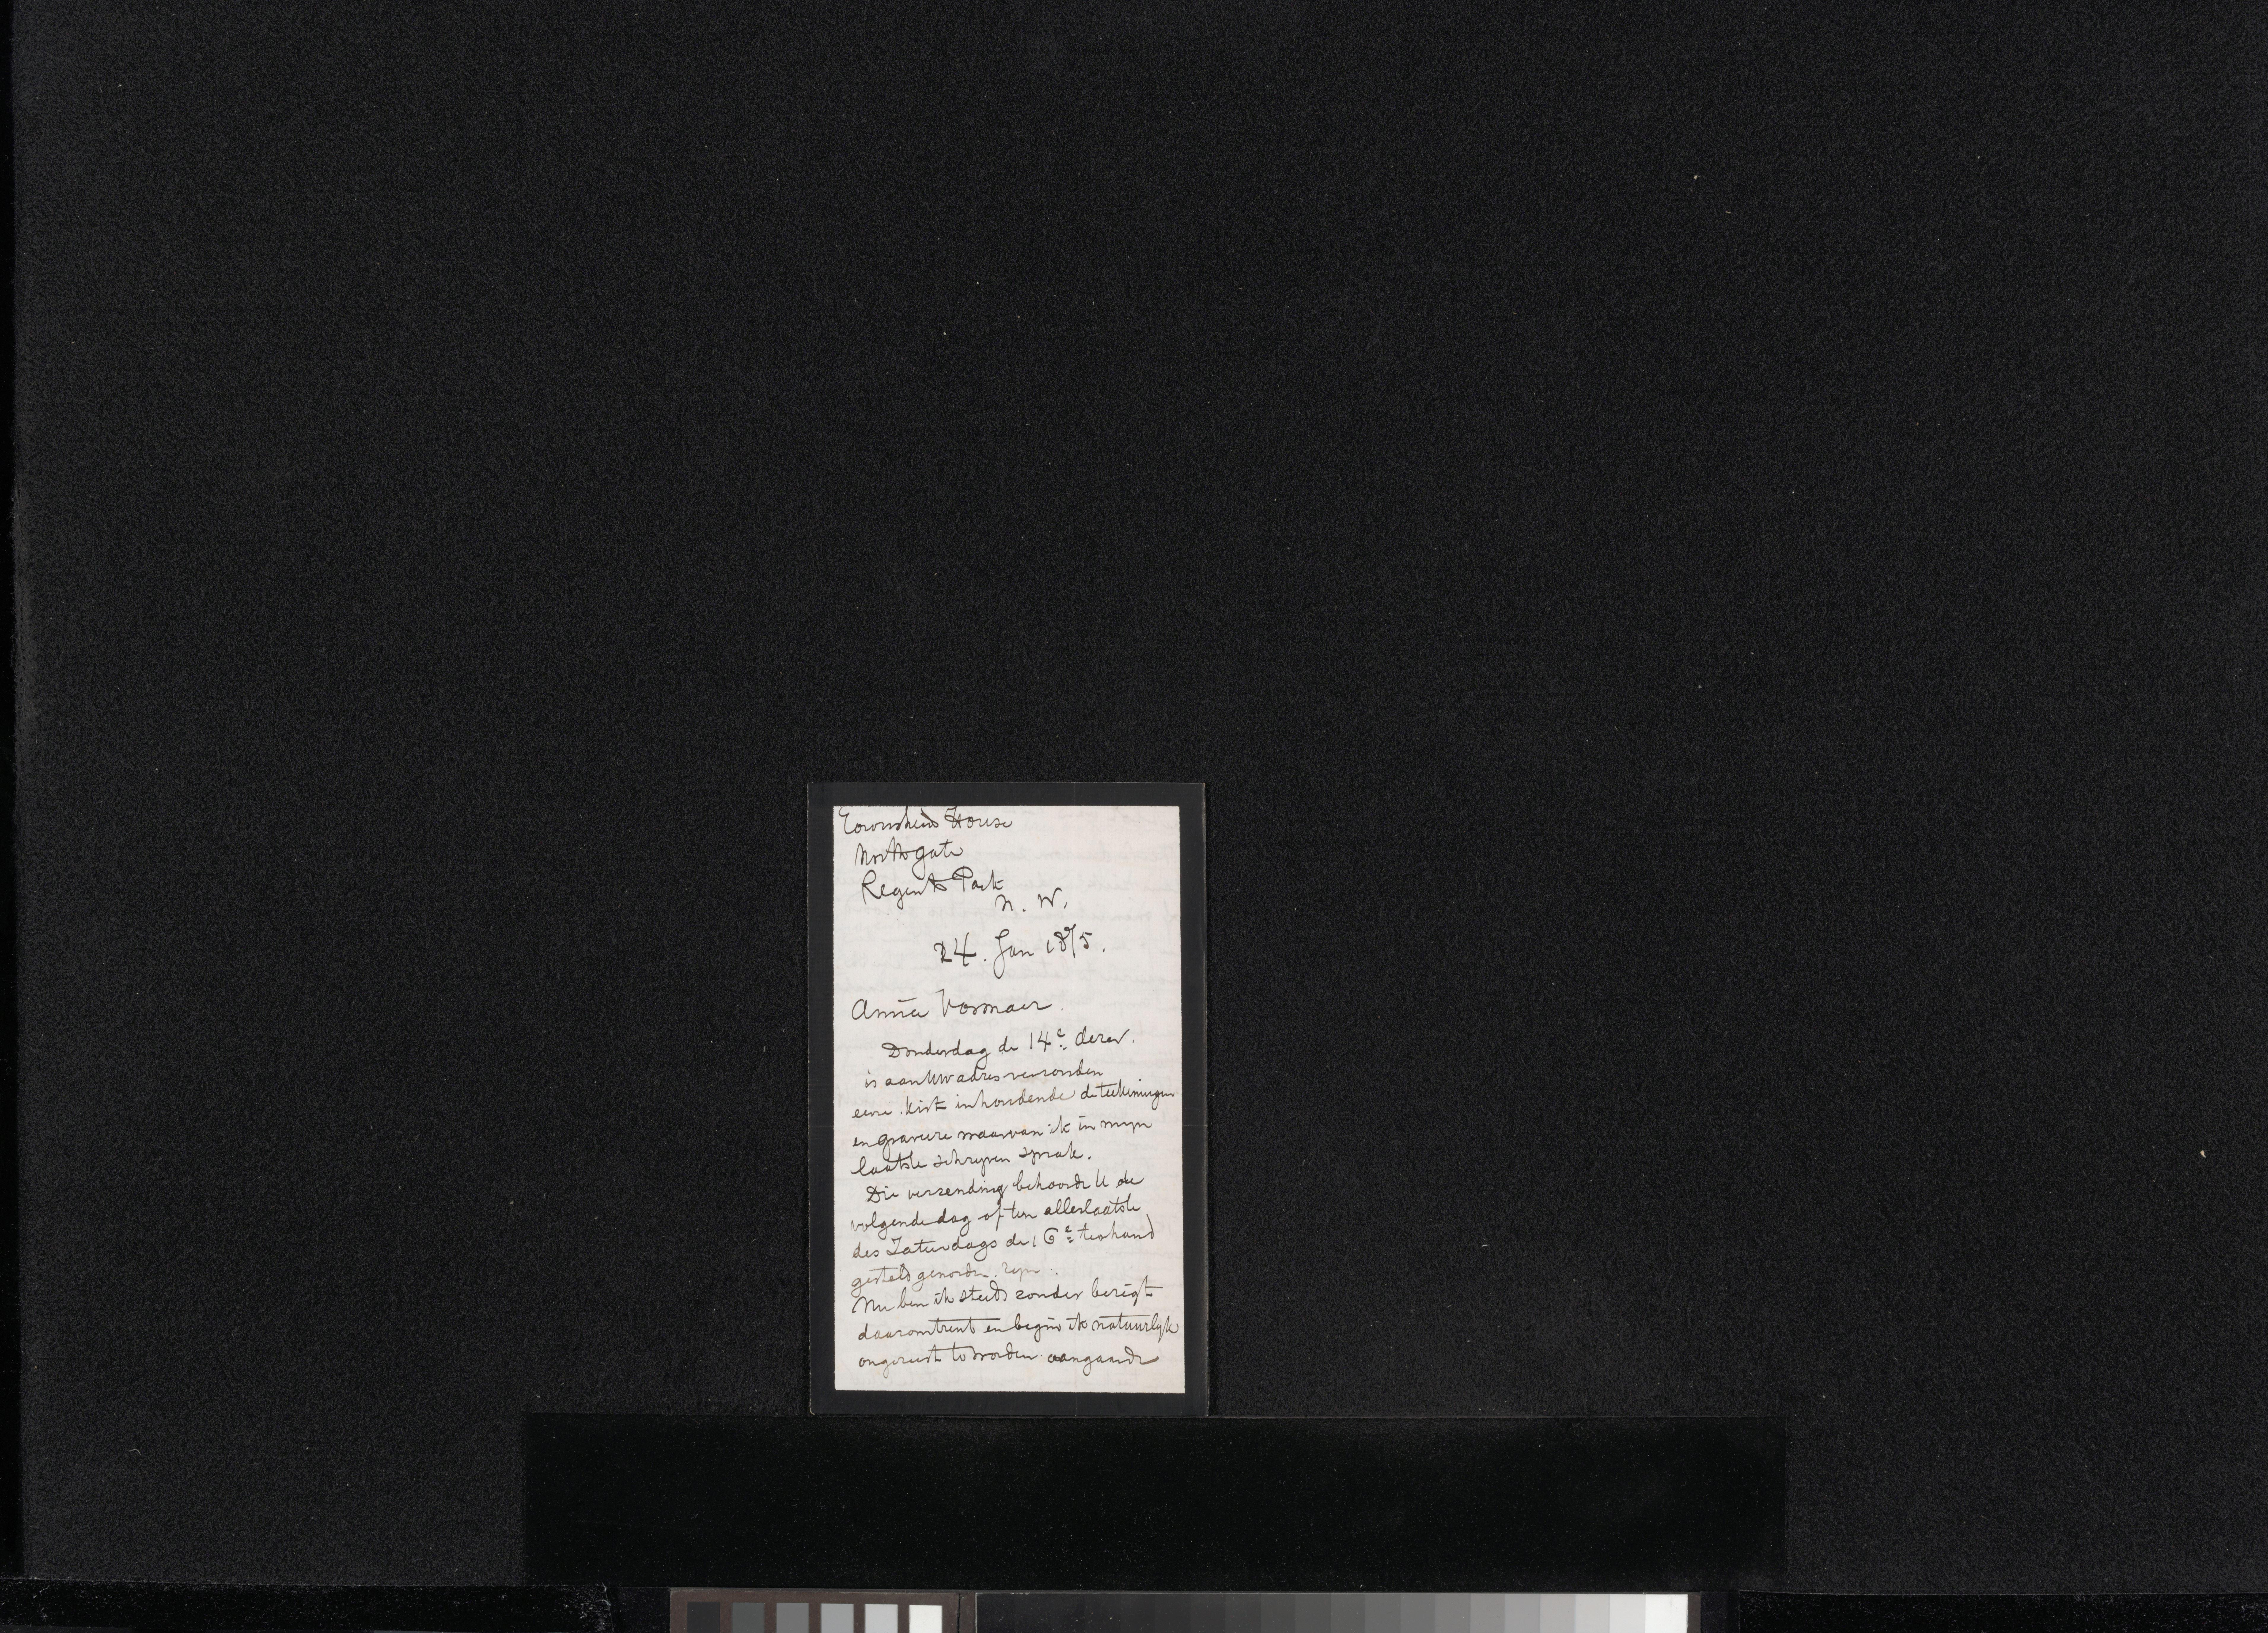 Townshend House
Northgate
Regents Park
N. W.
24. Jan 1875.
Amice Vosmaer.
Donderdag de 14e dezer.
is aan Uw adres verzonden
eene kist inhoudende de teekeningen
en gravure waarvan ik in myn
laatste schryven sprak.
Die verzending behoorde U de
volgende dag of ten allerlaatste
des Zaturdags de 16e ter hand
gesteld geworden zyn.
Nu ben ik steeds zonder berigt
daaromtrent en begin ik natuurlyk
ongerust te worden aangaande